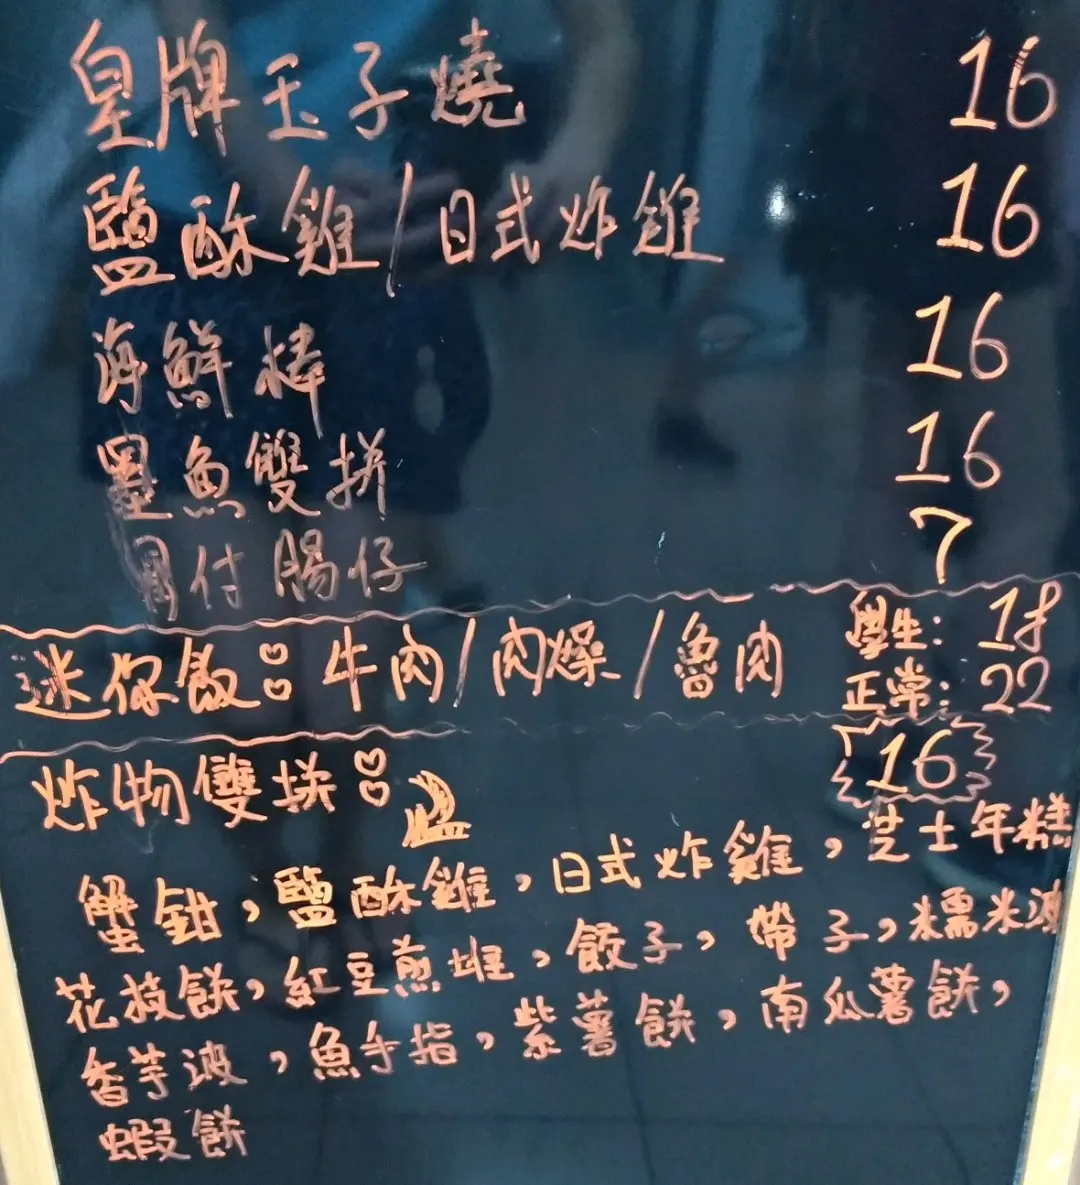 皇牌玉子燒 16
鹽酥雞/日式炸雞 16
海鮮棒 16
墨魚雙拼 16
骨付腸仔 7
迷你飯: 牛肉/肉燥/魯肉 學生: 18
正常: 22
炸物雙拼: 16
蟹鉗,鹽酥雞,日式炸雞,芝士年糕
花枝餅,紅豆煎堆,餃子,帶子,糯米波
香芋波,魚手指,紫薯餅,南瓜薯餅,
蝦餅